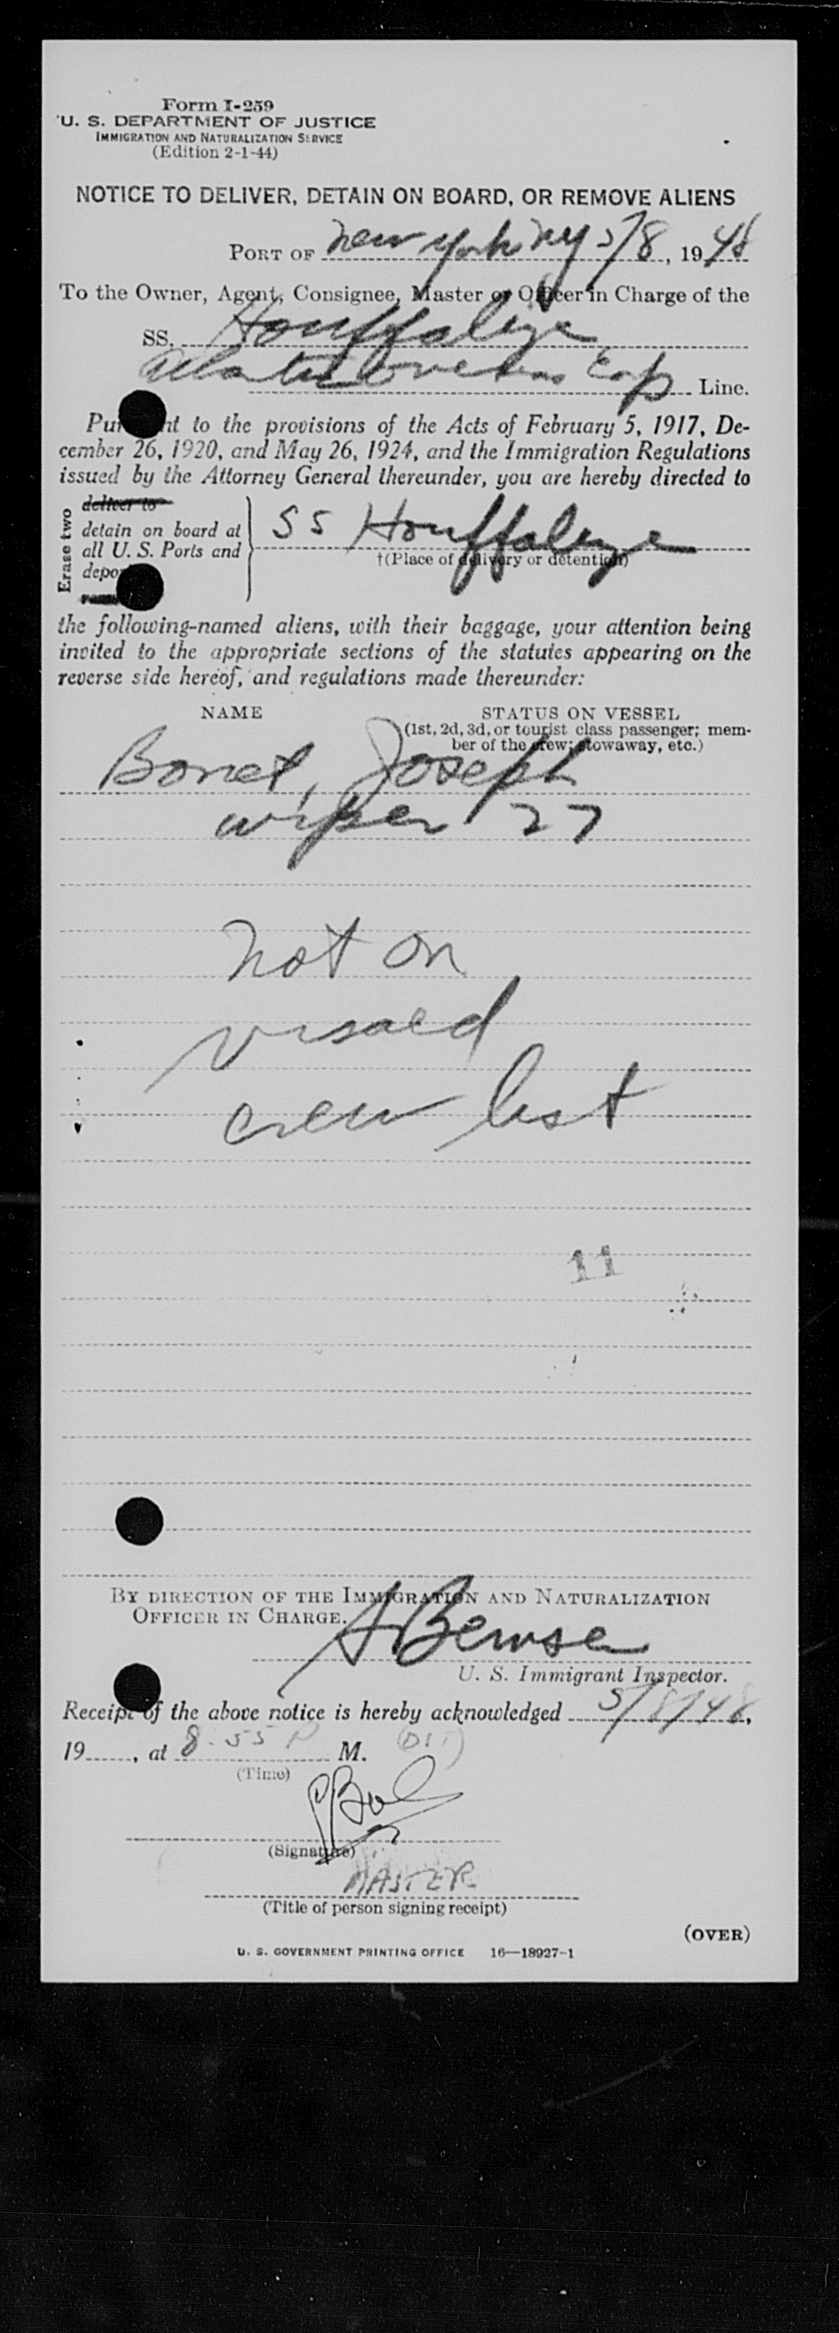 Form I-259
U. S. DEPARTMENT OF JUSTICE
IMMIGRATION AND NATURALIZATION SERVICE
(Edition 2-1-44)
NOTICE TO DELIVER, DETAIN ON BOARD, OR REMOVE ALIENS
PORT OF New York NY 5/8, 1948
To the Owner, Agent, Consignee, Master or Officer in Charge of the
SS. Houffalize
Overseas Corp Line.
Pu nt to the provisions of the Acts of February 5, 1917, De-
cember 26, 1920, and May 26, 1924, and the Immigration Regulations
issued by the Attorney General thereunder, you are hereby directed to
Erase two
deliver to
detain on board at
all U. S. Ports and
depo
SS Houffalize
†(Place of delivery or detention)
the following-named aliens, with their baggage, your attention being
invited to the appropriate sections of the statutes appearing on the
reverse side hereof, and regulations made thereunder:
NAME STATUS ON VESSEL
(1st, 2d, 3d, or tourist class passenger; mem-
ber of the crew; stowaway, etc.)
Bonet, Joseph
wiper 27
not on
visaed
crew list
11
BY DIRECTION OF THE IMMIGRATION AND NATURALIZATION
OFFICER IN CHARGE.
U. S. Immigrant Inspector.
Receipt of the above notice is hereby acknowledged 5/8/48,
19......, at 8.55 P M.
(Time)
(Signature)
MASTER
(Title of person signing receipt)
(OVER)
U. S. GOVERNMENT PRINTING OFFICE 16—18927-1